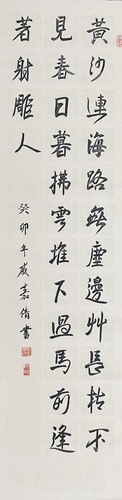 黃沙連海路無塵邊艸長枯不
見春日暮拂雲堆下過馬前逢
著射雕人
癸卯年歲嘉偉書